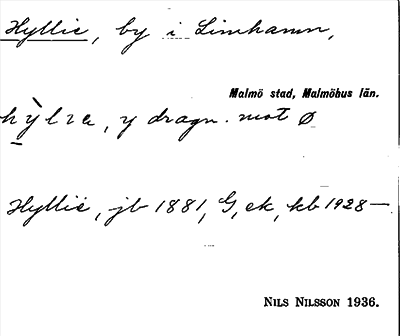 Hyllie, by i Limhamn,
Malmö stad, Malmöhus län.
hỳlɪe, y dragn. mot ø
Hyllie, jb 1881, G, ek, kb 1928—
Nils Nilsson 1936.